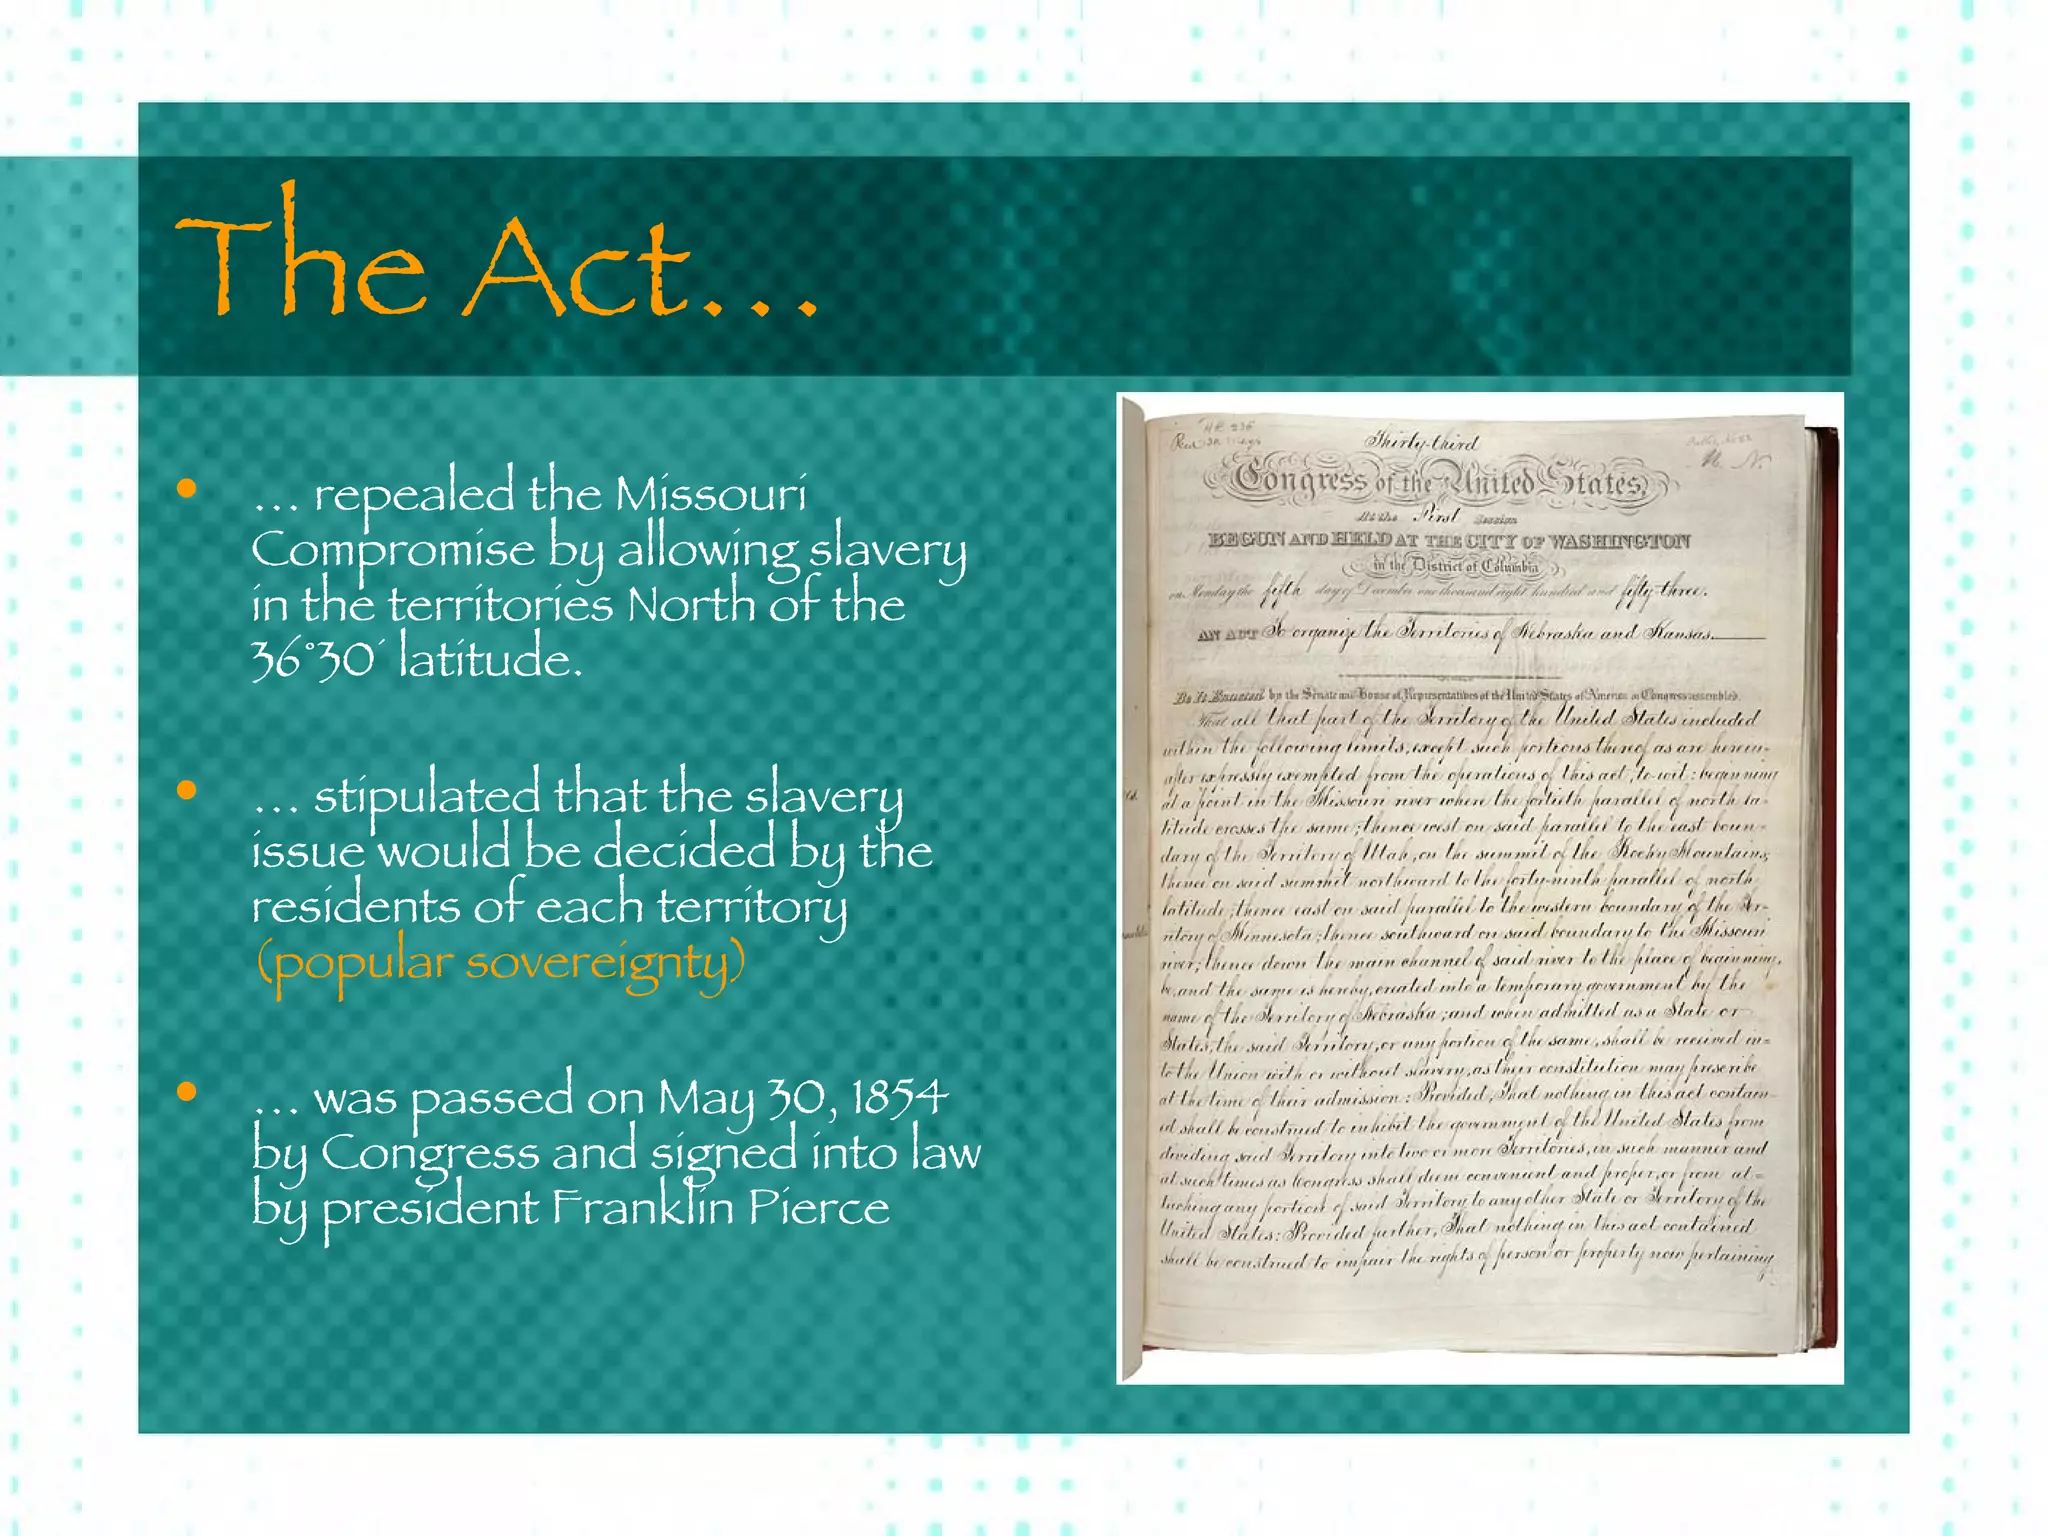 The Act...
• ... repealed the Missouri
Compromise by allowing slavery
in the territories North of the
36°30´ latitude.
• ... stipulated that the slavery
issue would be decided by the
residents of each territory
(popular sovereignty)
• ... was passed on May 30, 1854
by Congress and signed into law
by president Franklin Pierce
Thirty-third
Congress of the United States,
At the First Session
BEGUN AND HELD AT THE CITY OF WASHINGTON
in the District of Columbia
on Monday the fifth day of December one thousand eight hundred and fifty-three.
AN ACT To organize the Territories of Nebraska and Kansas.
Be It Enacted by the Senate and House of Representatives of the United States of America in Congress assembled,
That all that part of the Territory of the United States included
within the following limits, except such portions thereof as are herein-
after expressly exempted from the operations of this act, to wit: beginning
at a point in the Missouri river where the fortieth parallel of north la-
titude crosses the same; thence west on said parallel to the east boun-
dary of the Territory of Utah, on the summit of the Rocky Mountains;
thence on said summit northward to the forty-ninth parallel of north
latitude; thence east on said parallel to the western boundary of the Ter-
ritory of Minnesota; thence southward on said boundary to the Missouri
river; thence down the main channel of said river to the place of beginning,
be, and the same is hereby, created into a temporary government by the
name of the Territory of Nebraska; and when admitted as a State or
States, the said Territory, or any portion of the same, shall be received in-
to the Union with or without slavery, as their constitution may prescribe
at the time of their admission: Provided, That nothing in this act contain-
ed shall be construed to inhibit the government of the United States from
dividing said Territory into two or more Territories, in such manner and
at such times as Congress shall deem convenient and proper, or from at-
taching any portion of said Territory to any other State or Territory of the
United States: Provided further, That nothing in this act contained
shall be construed to impair the rights of person or property now pertaining